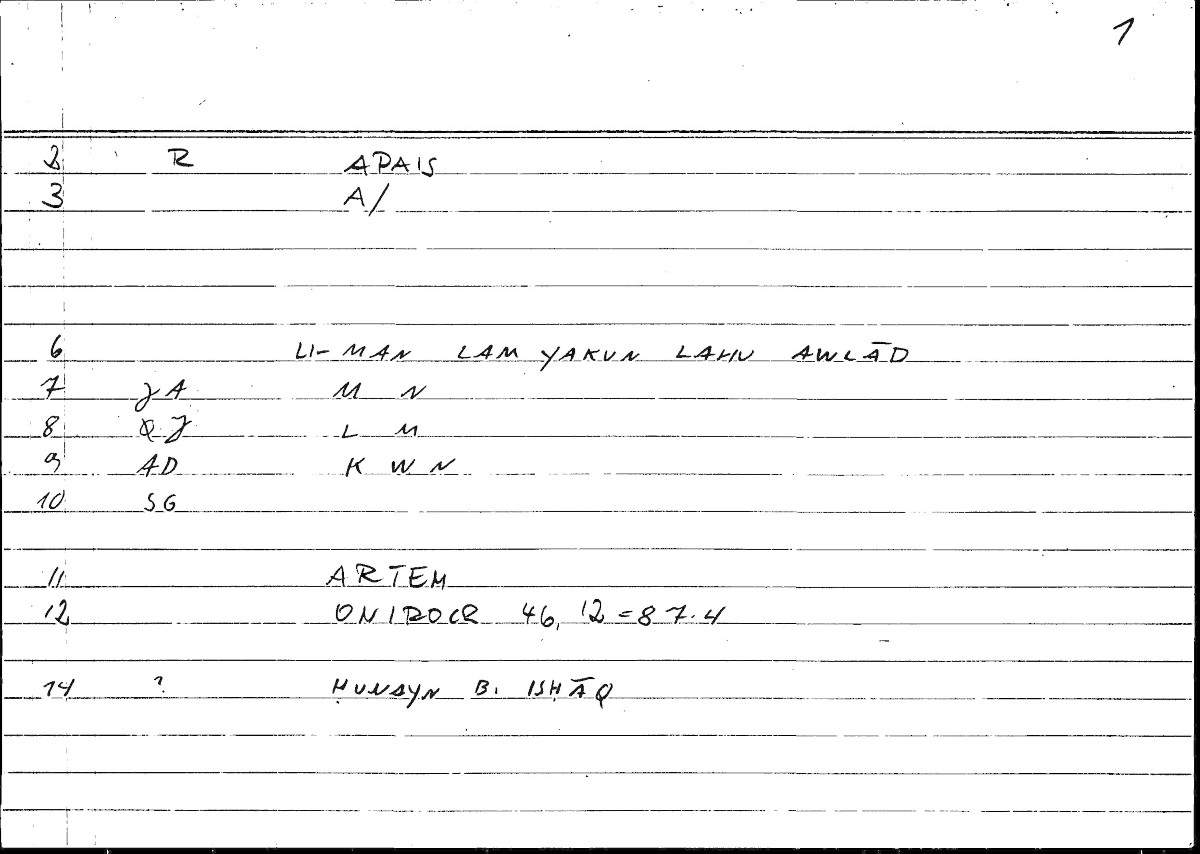 1
2 R APAIS
3 A/
6 LI-MAN LAM YAKUN LAHU AWLĀD
7 JA M N
8 QJ L M
9 AD K W N
10 SG
11 ARTEM
12 ONIROCR 46,12=87.4
14 ? ḤUNAYN B. ISḤĀQ